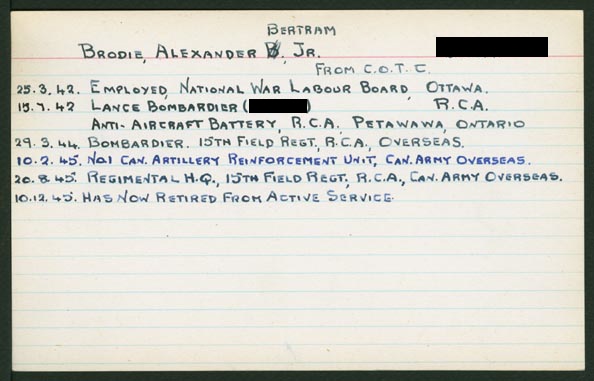 BERTRAM
BRODIE, ALEXANDER B, JR.
FROM C.O.T.C.
25.3.42. EMPLOYED, NATIONAL WAR LABOUR BOARD, OTTAWA.
15.7.42 LANCE BOMBARDIER ( ) R.C.A.
ANTI-AIRCRAFT BATTERY, R.C.A. PETAWAWA, ONTARIO
29.3.44. BOMBARDIER. 15TH FIELD REGT, R.C.A., OVERSEAS.
10.2.45. NO.1 CAN. ARTILLERY REINFORCEMENT UNIT, CAN. ARMY OVERSEAS.
20.8.45. REGIMENTAL H.Q., 15TH FIELD REGT, R.C.A., CAN. ARMY OVERSEAS.
10.12.45. HAS NOW RETIRED FROM ACTIVE SERVICE.